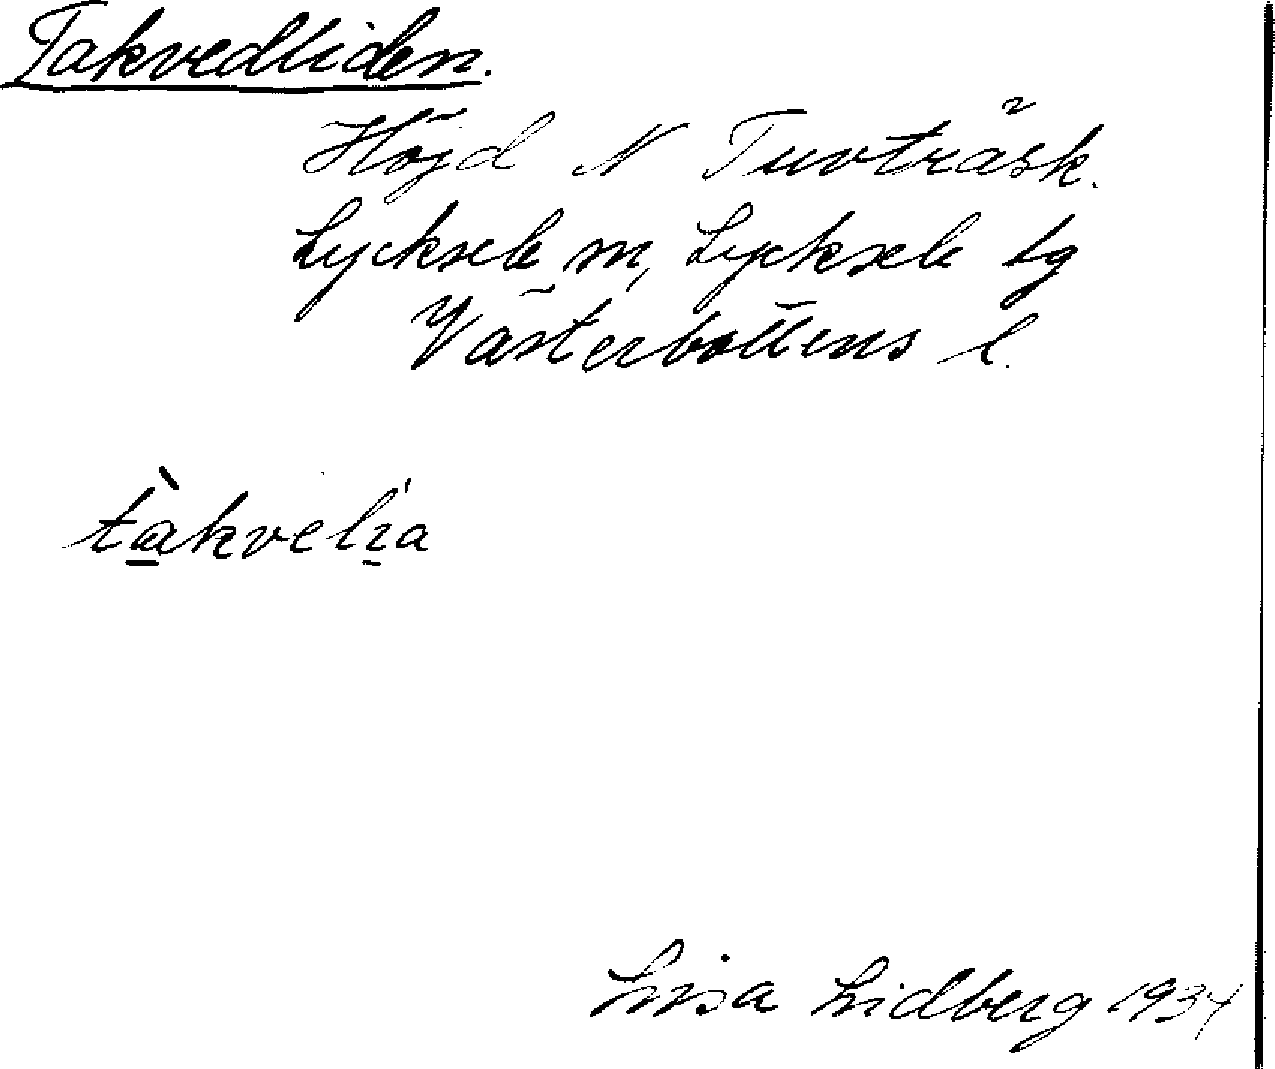 Takvedliden.
Höjd N Tuvträsk.
Lycksele m, Lycksele lg
Västerbottens l.
tàkvelia
Lisa Lidberg 1934